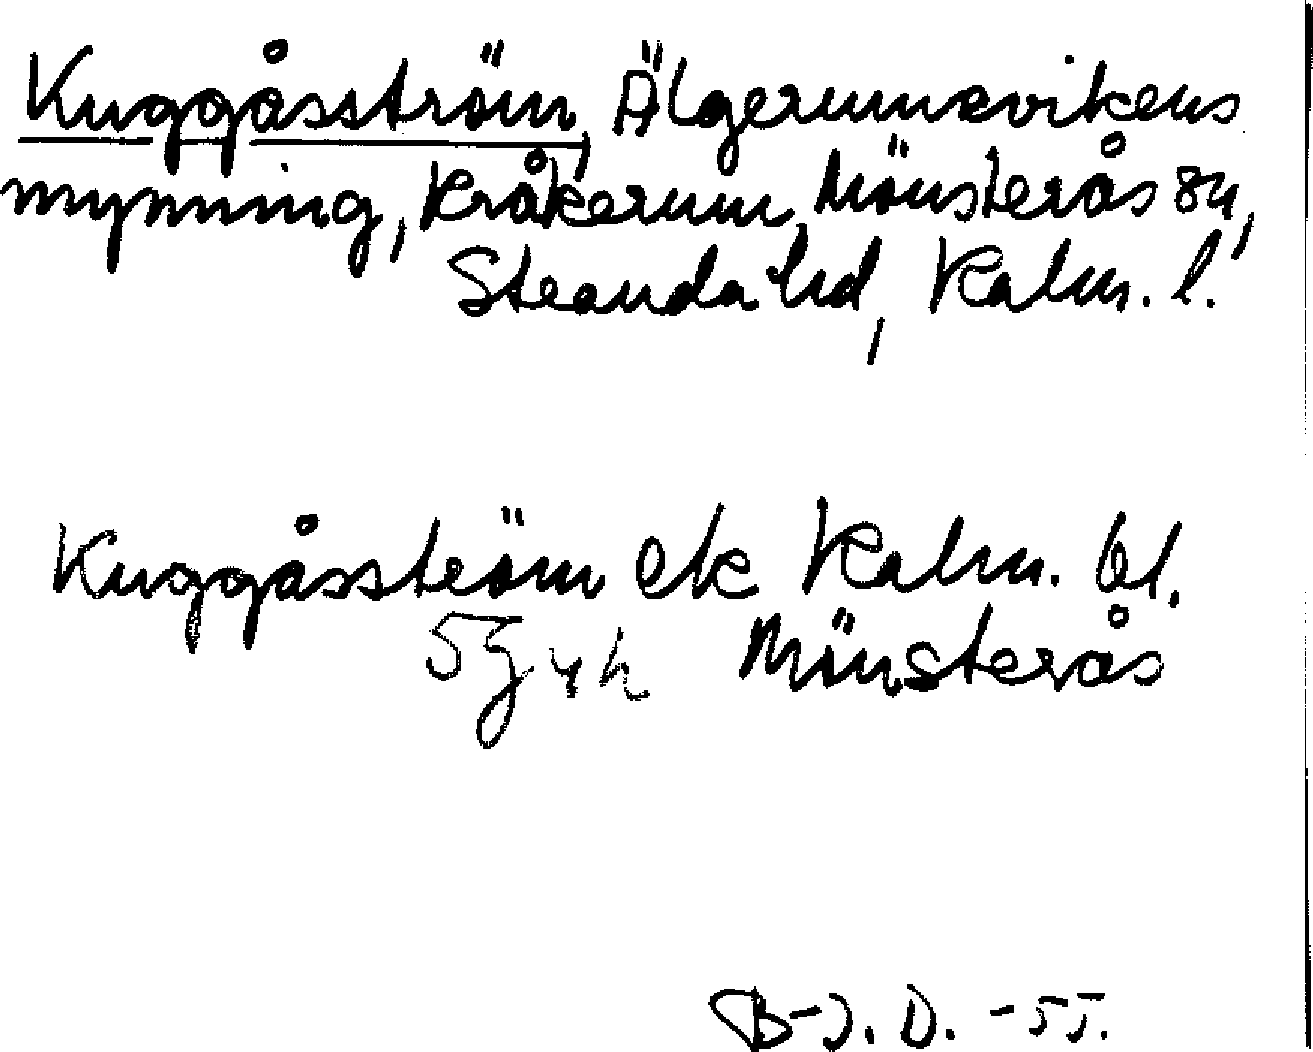 Kuggåsström, Älgerumsvikens
mynning, Kråkerum, Mönsterås sn,
Stranda hd, Kalm. l.
Kuggåsström ek Kalm. bl.
5g4h Mönsterås
B-J. D. -55.